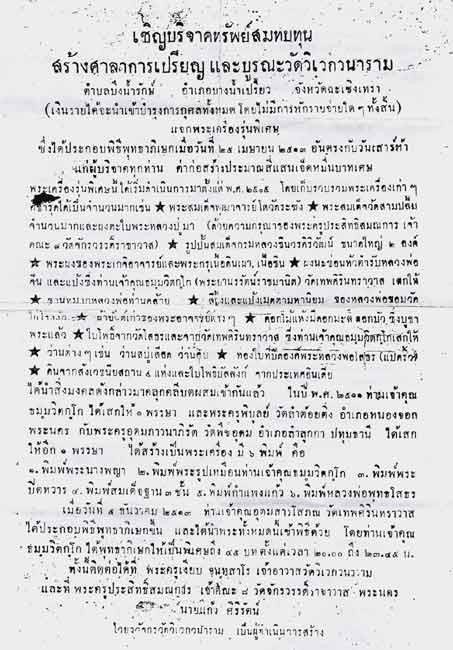 เชิญบริจาคทรัพย์สมทบทุน
สร้างศาลาการเปรียญ และบูรณะวัดวิเวกวนาราม
ตำบลบึงน้ำรักษ์ อำเภอบางน้ำเปรี้ยว จังหวัดฉะเชิงเทรา
(เงินรายได้จะนำเข้าบำรุงการกุศลทั้งหมด โดยไม่มีการหักรายจ่ายใด ๆ ทั้งสิ้น)
แจกพระเครื่องรุ่นพิเศษ
ซึ่งได้ประกอบพิธีพุทธาภิเษกเมื่อวันที่ ๒๕ เมษายน ๒๕๑๓ อันตรงกับวันเสาร์ห้า
แก่ผู้บริจาคทุกท่าน ค่าก่อสร้างประมาณสี่แสนเจ็ดหมื่นบาทเศษ
พระเครื่องรุ่นพิเศษนี้ได้เริ่มดำเนินการมาตั้งแต่ พ.ศ. ๒๕๐๕ โดยเก็บรวบรวมพระเครื่องเก่า ๆ
ชำรุดได้เป็นจำนวนมากเช่น ★ พระสมเด็จพุฒาจารย์โตวัดระฆัง ★ พระสมเด็จวัดสามปลื้ม
จำนวนมากและผงตะใบพระหลวงปู่ (ด้วยความกรุณาของพระครูประสิทธิสมณการ เจ้า
คณะ ๘ วัดจักรวรรดิ์ราชาวาส) ★ รูปปั้นสมเด็จกรมหลวงชินวรสิริวัฒน์ ขนาดใหญ่ ๒ องค์
★ พระผงของพระเกจิอาจารย์และพระกรุเนื้อดินเผา, เนื้อชิน ★ ผงมะขามหัวดำรับหลวงพ่อ
จีน และแป้งซึ่งท่านเจ้าคุณธมฺมวิตกฺโก (พระยานรรัตน์ราชมานิต) วัดเทพศิรินทราวาส เสกให้
★ ชานหมากหลวงพ่อท่านคล้าย ★ และแป้งเมตตามหานิยม ของหลวงพ่อขอมวัด
★ ของพระอาจารย์ต่าง ๆ ★ ดอกไม้แห้งมีดอกมะลิ ดอกบัว ซึ่งบูชา
พระแล้ว ★ ใบโพธิ์จากวัดโสธรและจากวัดเทพศิรินทราวาส ซึ่งท่านเจ้าคุณธมฺมวิตกฺโกเสกให้
★ ว่านต่าง ๆ เช่น ว่านสบู่เลือด ว่านคุ้ม ★ ทองใบที่ปิดองค์พระหลวงพ่อโสธร (แปดริ้ว)
★ ดินจากสังเวชนียสถาน ๔ แห่งและใบโพธิ์บัลลังก์ จากประเทศอินเดีย
ได้นำสิ่งมงคลดังกล่าวมาคลุกเคล้าบดผสมเข้ากันแล้ว ในปี พ.ศ. ๒๕๑๑ ท่านเจ้าคุณ
ธมฺมวิตกฺโก ได้เสกให้ ๑ พรรษา และพระครูพิบูลย์ วัดลำต้อยติ่ง อำเภอหนองจอก
พระนคร กับพระครูอุดมภาวนาภิรัต วัดพืชอุดม อำเภอลำลูกกา ปทุมธานี ได้เสก
ให้อีก ๑ พรรษา ได้สร้างเป็นพระเครื่อง มี ๖ พิมพ์ คือ
๑. พิมพ์พระนางพญา ๒. พิมพ์พระรูปเหมือนท่านเจ้าคุณธมฺมวิตกฺโก ๓. พิมพ์พระ
ปิดทวาร ๔. พิมพ์สมเด็จฐาน ๓ ชั้น ๕. พิมพ์กำแพงแก้ว ๖. พิมพ์หลวงพ่อพุทธโสธร
เมื่อวันที่ ๕ ธันวาคม ๒๕๑๓ ท่านเจ้าคุณอุดมสารโสภณ วัดเทพศิรินทราวาส
ได้ประกอบพิธีพุทธาภิเษกขึ้น และได้นำพระทั้งหมดนี้เข้าพิธีด้วย โดยท่านเจ้าคุณ
ธมฺมวิตกฺโก ได้พุทธาภิเษกให้เป็นพิเศษถึง ๔๕ บท ตั้งแต่เวลา ๒๐.๐๐ ถึง ๒๓.๔๕ น.
ทั้งนี้ติดต่อได้ที่ พระครูเงียบ จนฺทสาโร เจ้าอาวาสวัดวิเวกวนาราม
และที่ พระครูประสิทธิ์สมณการ เจ้าคณะ ๘ วัดจักรวรรดิ์ราชาวาส พระนคร
นายแก้ว ศิริรัตน์
ไวยาวัจกรวัดวิเวกวนาราม เป็นผู้ดำเนินการสร้าง